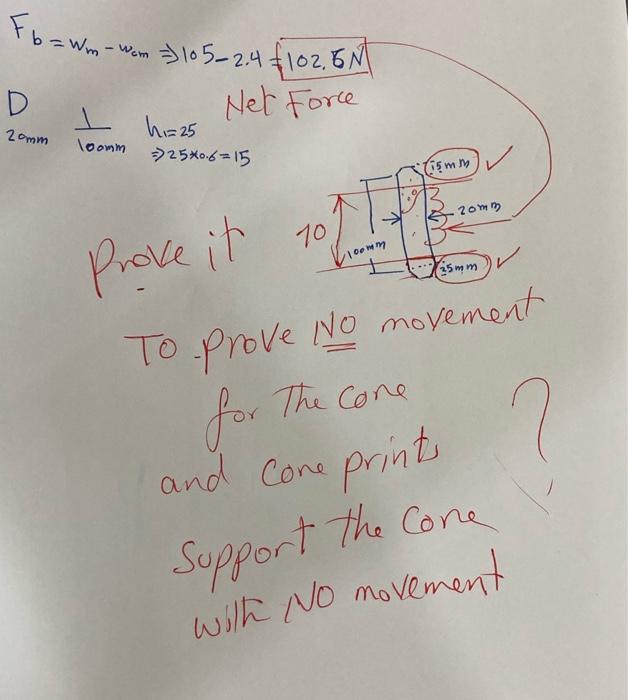 Fb = Wm - Wcm ⇒ 105 - 2.4 = 102.6 N
Net Force
D 1 h1 = 25
20mm 100mm ⇒ 25*0.6 = 15
15 mm
20mm
10
100mm
25mm
Prove it
To prove NO movement
for The Core
and Core prints
Support The Core
with NO movement
?